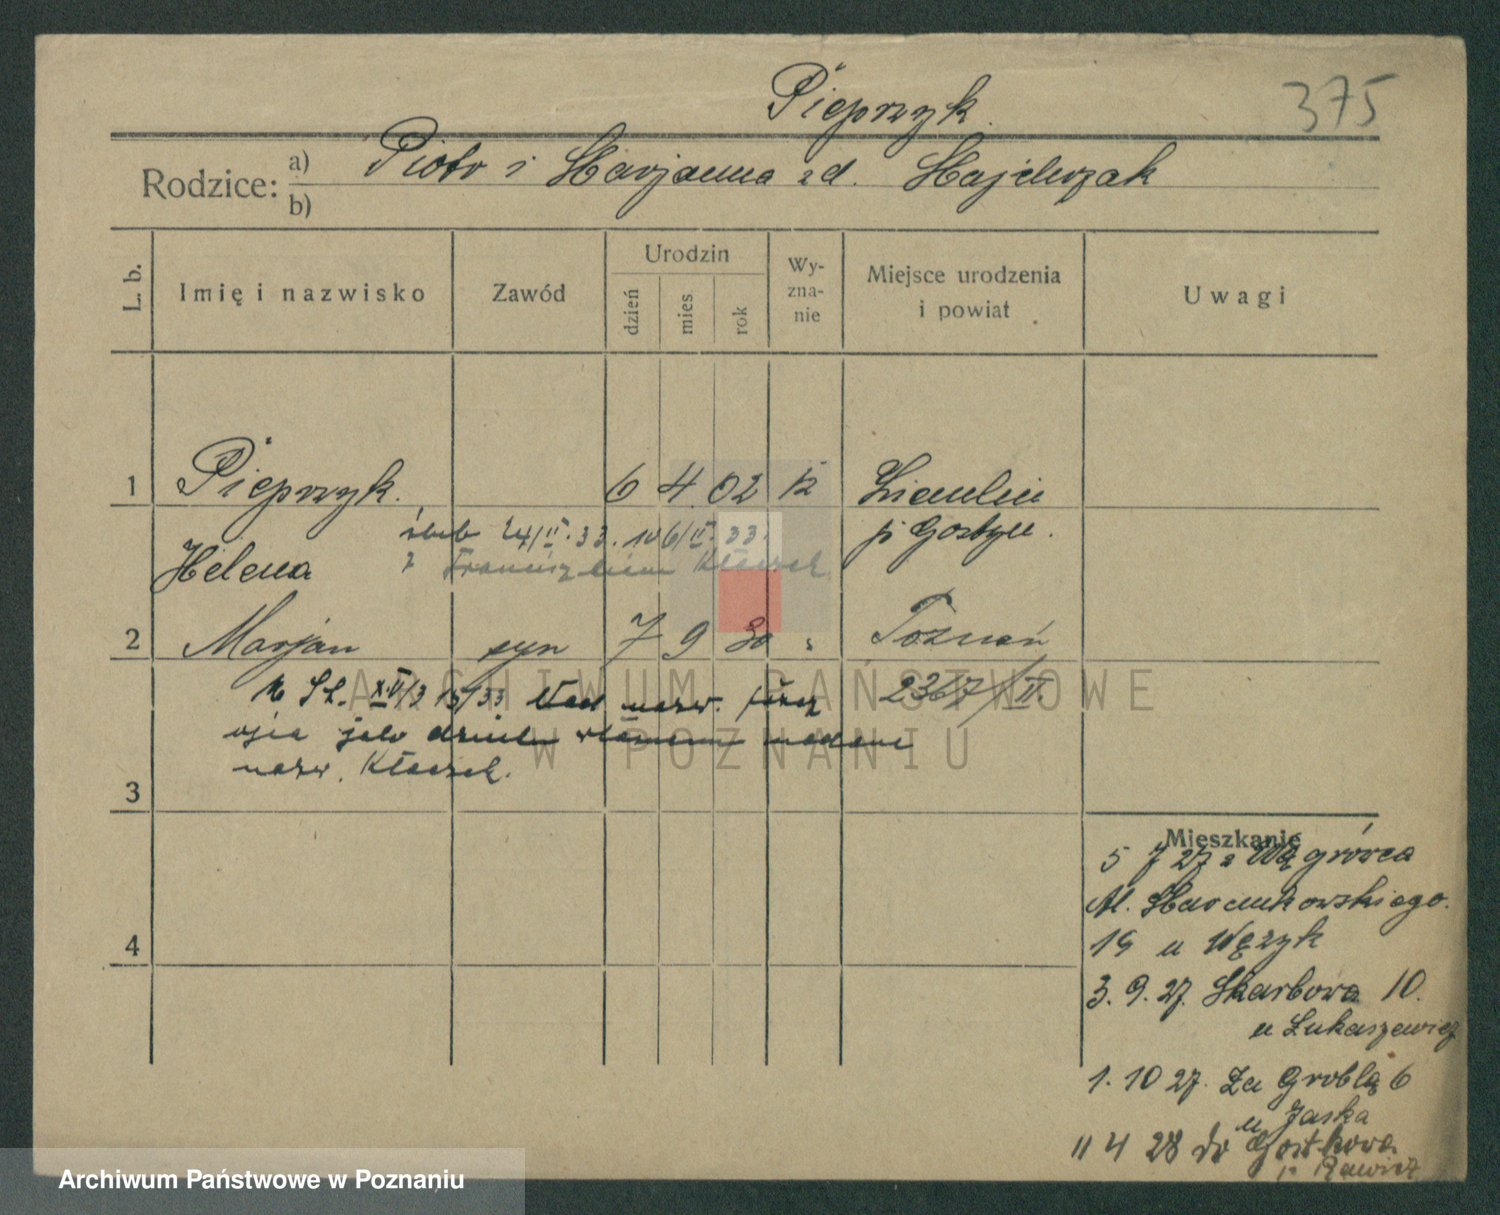 Pieprzyk. 375
Rodzice: a) Piotr i Marjanna zd. Majchrzak
b)
L. b. Imię i nazwisko Zawód Urodzin dzień mies rok Wyznanie Miejsce urodzenia i powiat Uwagi
1 Pieprzyk. 6 4 02 k Ziemlin
ślub 24/II. 33. 106/II. 33. p. Gostyń.
Helena z Franciszkiem Kłaczek
2 Marjan syn 7 9 30 " Poznań
15/33 nazw. 2367/II.
ojca jako nadano
nazw. Kłaczek.
3
Mieszkanie
5 7 27 z Wągrówca
Al. Marcinkowskiego.
19 u Wężyk
4
3. 9. 27. Skarbowa 10.
u Łukaszewicz
1. 10 27. Za Groblą 6
u Jaska
11 4 28 do Gostkowa
p. Rawicz
ARCHIWUM PAŃSTWOWE
W POZNANIU
Archiwum Państwowe w Poznaniu